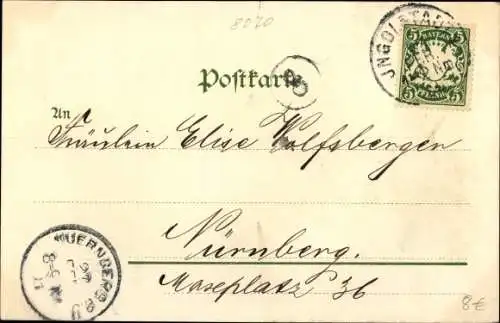 8070
INGOLSTADT
BAYERN
5 5
5 PFENNIG 5
Postkarte
An
Fräulein Elise Wolfsbergen
Nürnberg.
Maxplatz 36
NUERNBERG
8€